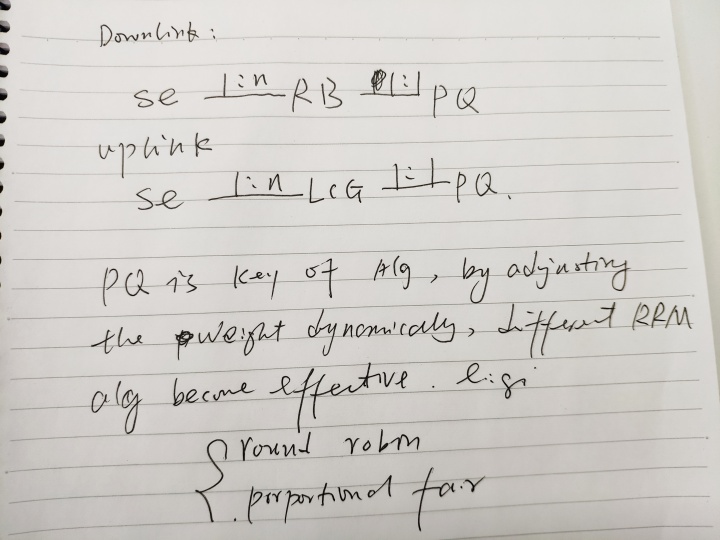 Downlink:
se 1:n RB 1:1 PQ
uplink
se 1:n LCG 1:1 PQ.
PQ is key of Alg, by adjusting
the weight dynamically, different RRM
alg become effective. e.g.
{ round robin
proportional fair